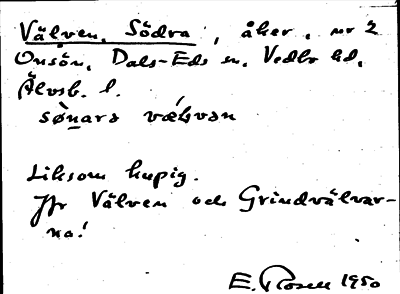 Välven, Södra, åker, nr 2
Önsön, Dals-Eds sn, Vedbo hd,
Älvsb. l.
sønara vælvan
Liksom kupig.
Jfr Välven och Grindvälvar-
na!
E. Rosell 1950